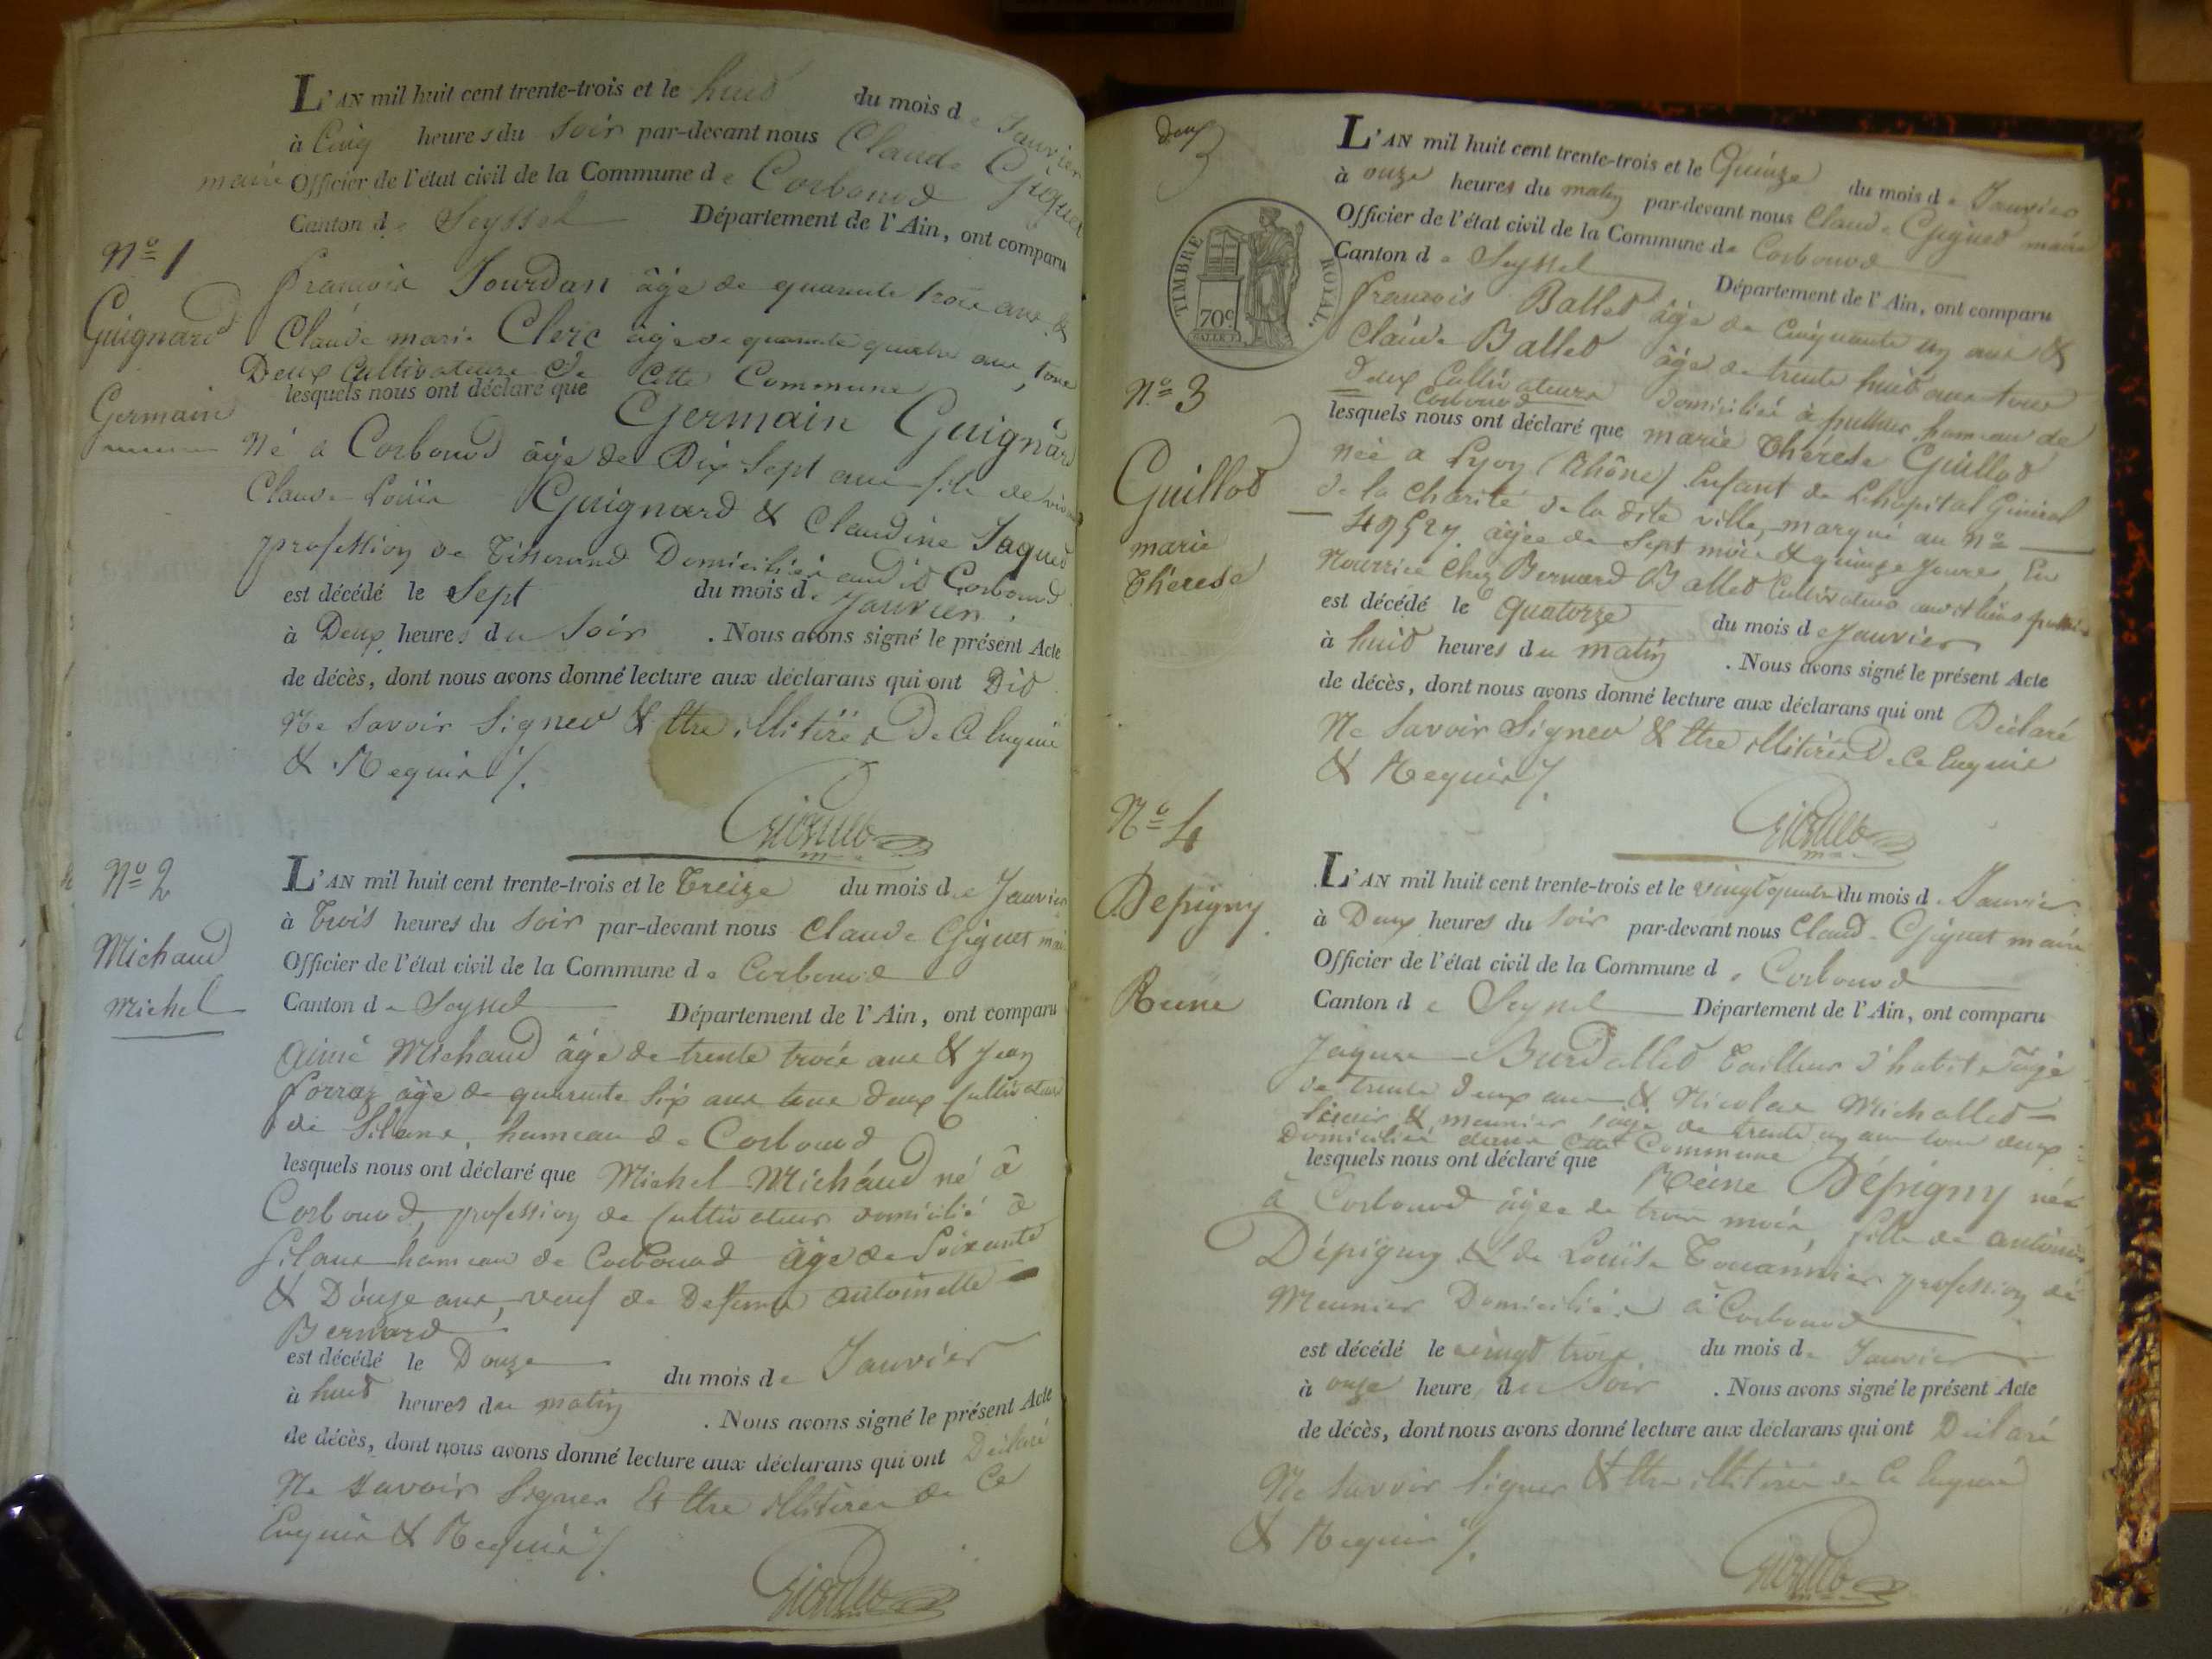 L'AN mil huit cent trente-trois et le huit du mois de Janvier
à Cinq heures du Soir par-devant nous Claude Giguet
maire Officier de l'état civil de la Commune de Corbonod
Canton de Seyssel Département de l'Ain, ont comparu
N° 1
Guignard
Germain
francois Jourdan âgé de quarante trois ans &
Claude marie Clerc âgé de quarante quatre ans, tous
Deux Cultivateurs de Cette Commune
lesquels nous ont déclaré que Germain Guignard
Né a Corbonod âgé de Dix Sept ans fils de
Claude Louis Guignard & Claudine Jaquet
profession de Tisserand Domiciliés audit Corbonod
est décédé le Sept du mois de Janvier
à Deux heures du Soir . Nous avons signé le présent Acte
de décès, dont nous avons donné lecture aux déclarans qui ont Dit
Ne Savoir Signer & Etre illitérés De Ce Enquis
& Requis /.
Giguet
N° 2
Michaud
Michel
L'AN mil huit cent trente-trois et le Treize du mois de Janvier
à Trois heures du Soir par-devant nous Claude Giguet
Officier de l'état civil de la Commune de Corbonod
Canton de Seyssel Département de l'Ain, ont comparu
Aimé Michaud âgé de trente trois ans & Jean
forraz âgé de quarante Six ans tous deux Cultivateurs
de Silans, hameau de Corbonod
lesquels nous ont déclaré que Michel Michaud né à
Corbonod, profession de Cultivateur domicilié à
Silans hameau de Corbonod âgé de Soixante
& Douze ans, veuf de Defunte antoinette
Bernard
est décédé le Douze du mois de Janvier
à huit heures du matin . Nous avons signé le présent Acte
de décès, dont nous avons donné lecture aux déclarans qui ont Déclaré
Ne Savoir Signer Et Etre illitérés de Ce
Enquis & Requis /.
Giguet
deux
TIMBRE ROYAL
70 c
L'AN mil huit cent trente-trois et le Quinze du mois de Janvier
à onze heures du matin par-devant nous Claude Giguet maire
Officier de l'état civil de la Commune de Corbonod
Canton de Seyssel Département de l'Ain, ont comparu
N° 3
Guillot
marie
Thérese
francois Ballet âgé de Cinquante un ans &
Claude Ballet âgé de trente huit ans tous
Deux Cultivateurs domiciliés à hameau de
Corbonod
lesquels nous ont déclaré que marie Thérese Guillot
née a Lyon (Rhône) Enfant de L'hopital Général
de la Charité de la dite ville, marqué au N°
49527. âgée de Sept mois & quinze Jours, En
Nourrice Chez Bernard Ballet Cultivateur
est décédé le Quatorze du mois de Janvier
à huit heures du matin . Nous avons signé le présent Acte
de décès, dont nous avons donné lecture aux déclarans qui ont Déclaré
Ne Savoir Signer & Etre illitérés De Ce Enquis
& Requis /.
Giguet
N° 4
Dépigny
Reine
L'AN mil huit cent trente-trois et le vingt quatre du mois de Janvier
à Deux heures du Soir par-devant nous Claude Giguet maire
Officier de l'état civil de la Commune de Corbonod
Canton de Seyssel Département de l'Ain, ont comparu
Jaques Burdallet Tailleur d'habits âgé
de trente deux ans & Nicolas Michallet
Scieur & meunier âgé de trente un ans tous deux
Domiciliés dans Cette Commune
lesquels nous ont déclaré que Reine Dépigny née
à Corbonod âgée de trois mois, fille de antoine
Dépigny & de Louise profession de
Meunier Domiciliés à Corbonod
est décédé le vingt trois du mois de Janvier
à onze heure du Soir . Nous avons signé le présent Acte
de décès, dont nous avons donné lecture aux déclarans qui ont Déclaré
Ne Savoir Signer & Etre illitérés de Ce Enquis
& Requis /.
Giguet